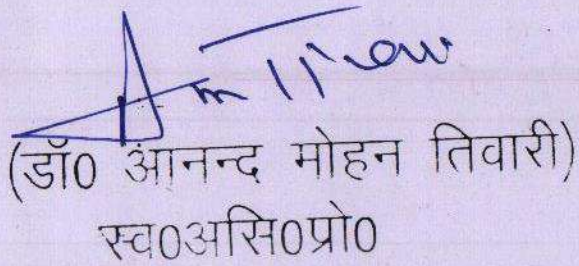 (डॉ0 आंनन्द मोहन तिवारी)
स्व0असि0प्रो0